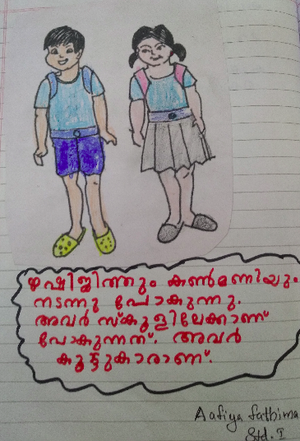 ഋഷിജിത്തും കൺമണിയും
നടന്നു പോകുന്നു.
അവർ സ്കൂളിലേക്കാണ്
പോകുന്നത്. അവർ
കൂട്ടുകാരാണ്.
Aafiya fathima
Std. I